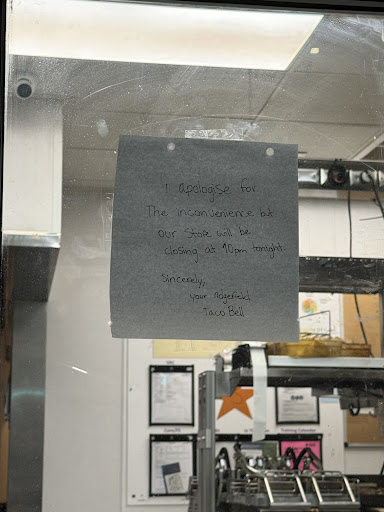 I apologise for
The inconvenience but
our store will be
closing at 10pm tonight.
Sincerely,
your ridgefield
Taco Bell
Training Calendar